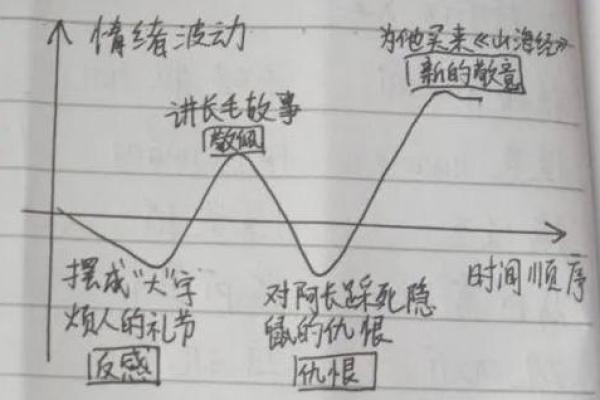 情绪波动
为他买来《山海经》
新的敬意
讲长毛故事
敬佩
摆成“大”字
烦人的礼节
反感
对阿长踩死隐
鼠的仇恨
仇恨
时间顺序